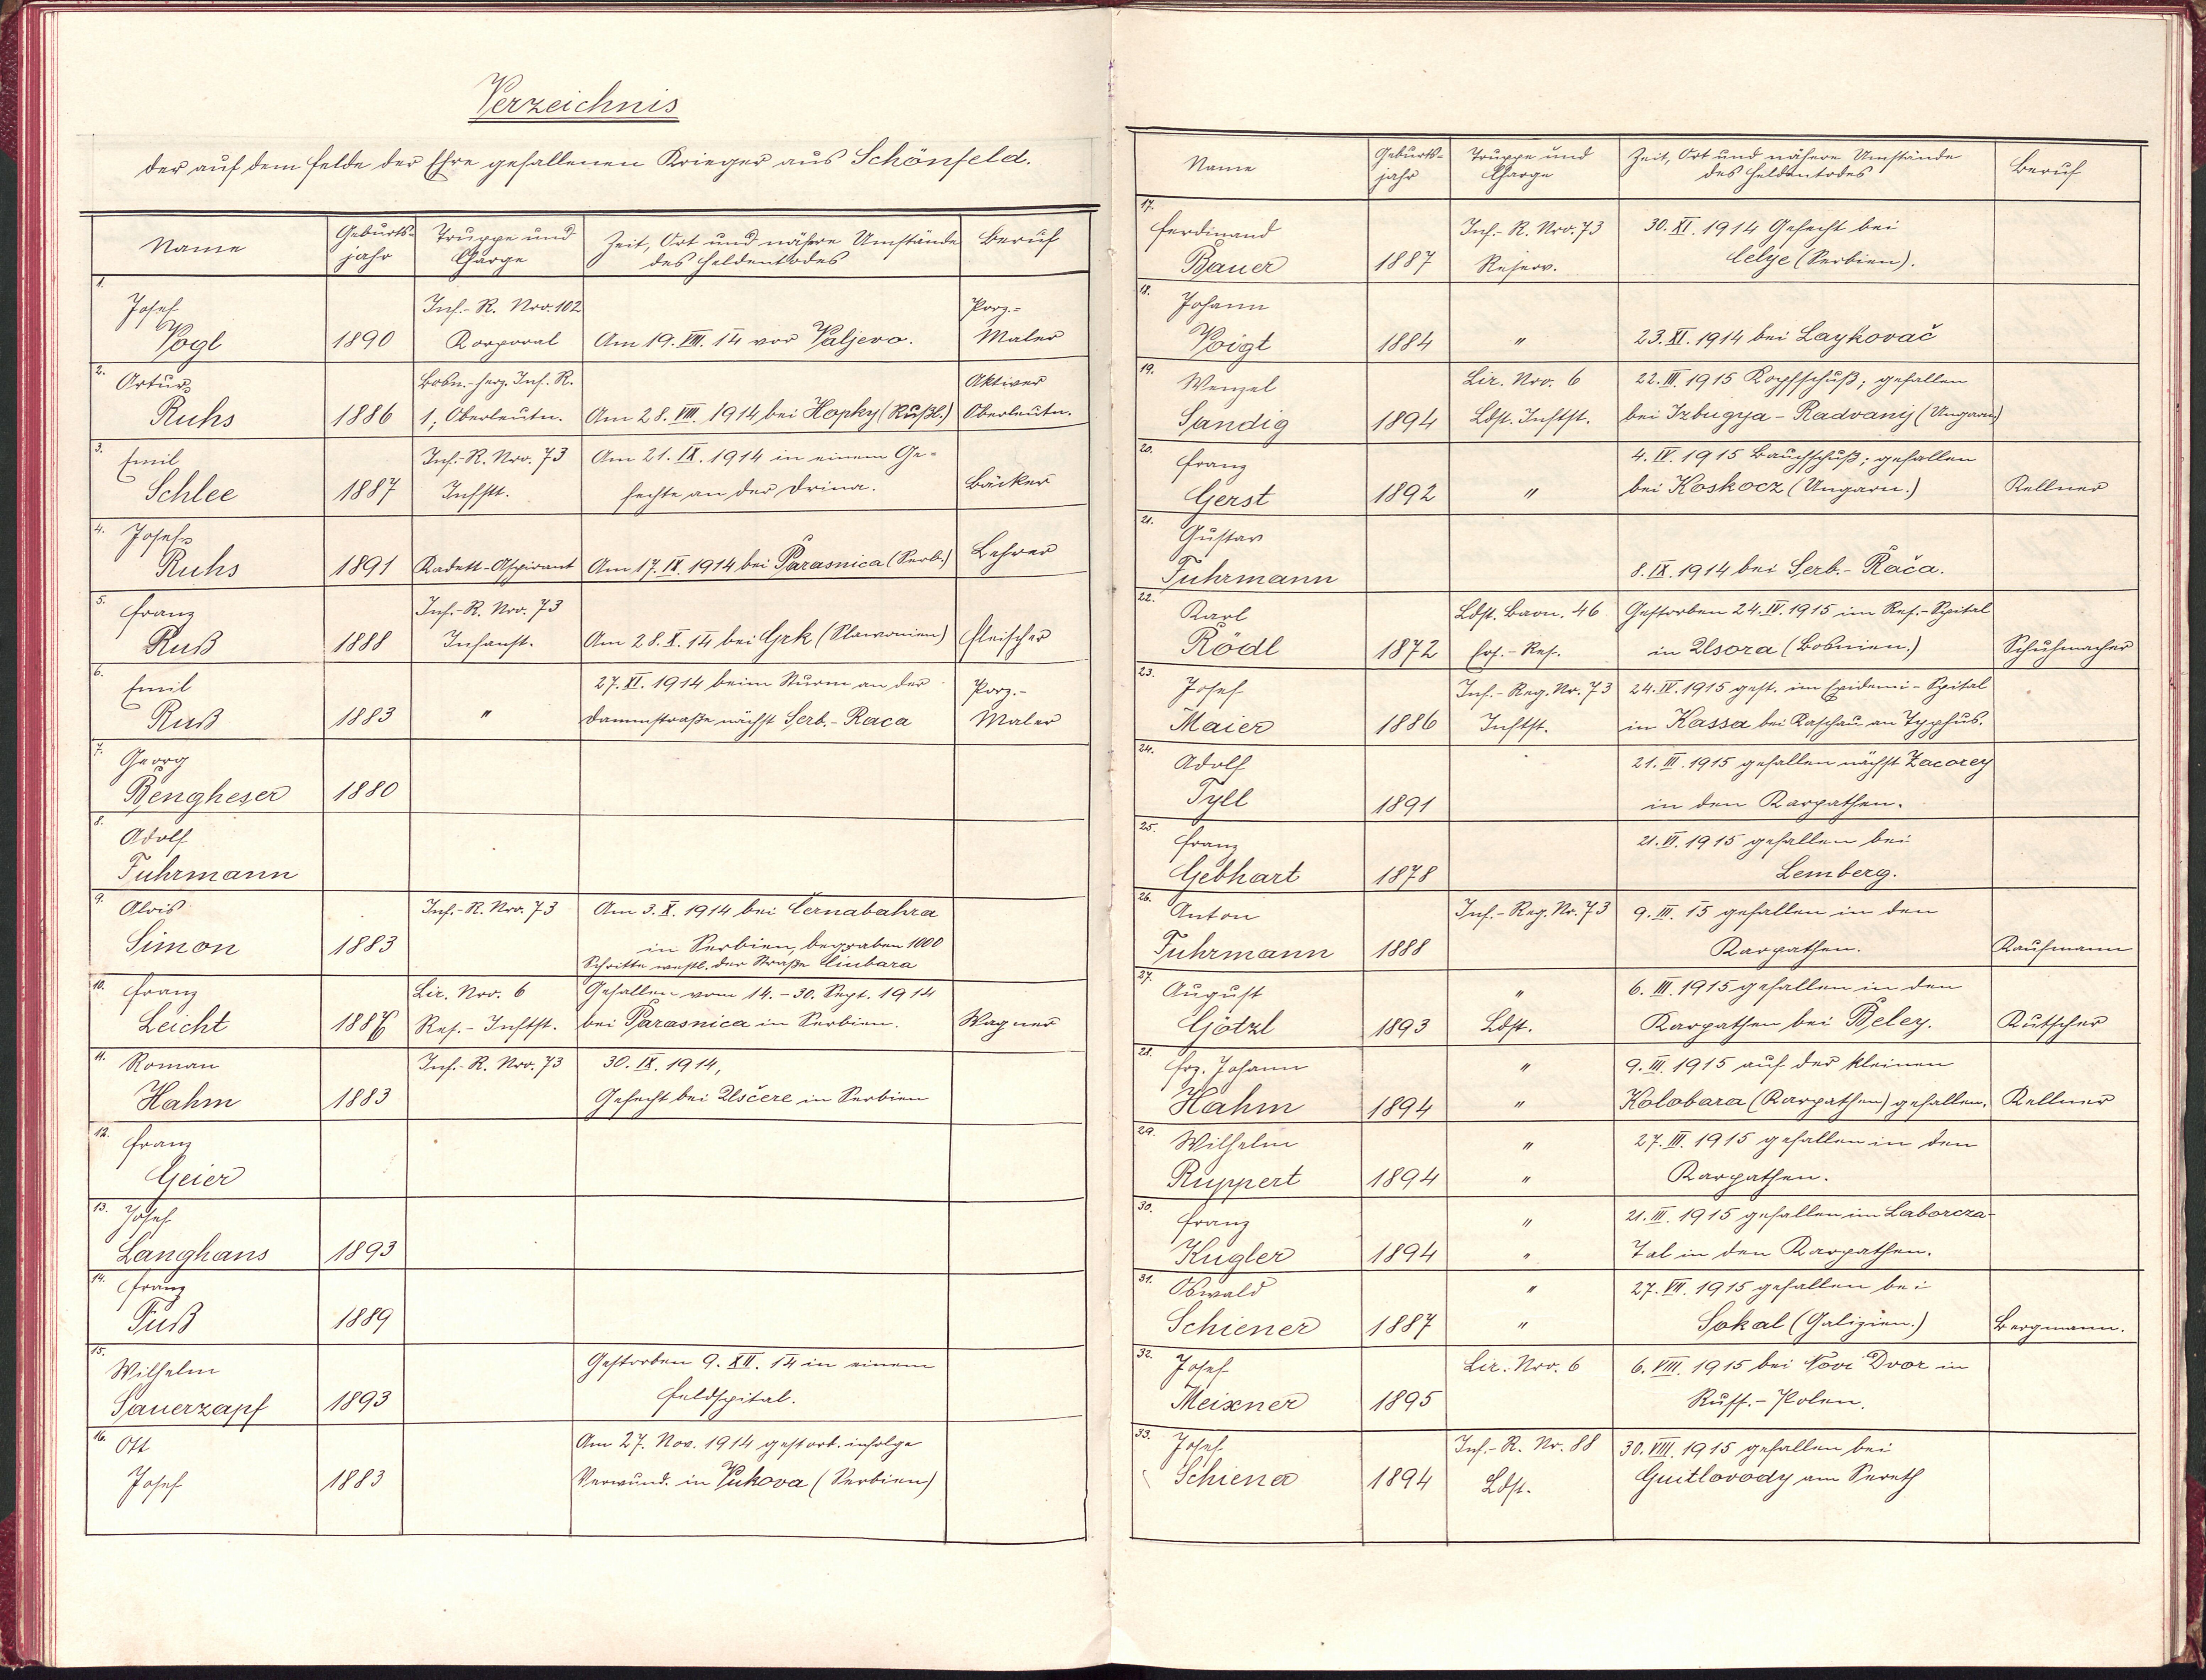 Verzeichnis
der auf dem Felde der Ehre gefallenen Krieger aus Schönfeld.
Name Geburts-jahr Truppe und Charge Zeit, Ort und nähere Umstände des Heldentodes Beruf
1. Josef Inf.-R. Nro. 102 Porz.-
Vogl 1890 Korporal Am 19. VIII. 14 vor Valjevo. Maler
2. Artur Bosn.-herz. Inf. R. Aktiver
Ruhs 1886 1, Oberleutn. Am 28. VIII. 1914 bei Hopky (Rußl.) Oberleutn.
3. Emil Inf.-R. Nro. 73 Am 21. IX. 1914 in einem Ge-
Schlee 1887 Infstt. fechte an der Drina. Bäcker
4. Josef
Ruhs 1891 Kadett-Aspirant Am 17. IX. 1914 bei Parasnica (Serb.) Lehrer
5. Franz Inf.-R. Nro. 73
Ruß 1888 Infanst. Am 28. X. 14 bei Grk (Slawonien) Fleischer
6. Emil 27. XI. 1914 beim Sturm an der Porz.-
Ruß 1883 " Dammstraße nächst Serb.-Raca Maler
7. Georg
Bengheser 1880
8. Adolf
Fuhrmann
9. Alois Inf.-R. Nro. 73 Am 3. X. 1914 bei Černabahra
Simon 1883 in Serbien, begraben 1000
Schritte westl. der Straße Ciubara
10. Franz Lir. Nro. 6 Gefallen vom 14.-30. Sept. 1914
Leicht 1886 Res.-Inftst. bei Parasnica in Serbien. Wagner
11. Roman Inf.-R. Nro. 73 30. IX. 1914,
Hahm 1883 Gefecht bei Usčere in Serbien
12. Franz
Geier
13. Josef
Langhans 1893
14. Franz
Fuß 1889
15. Wilhelm Gestorben 9. XII. 14 in einem
Sauerzapf 1893 Feldspital.
16. Ott Am 27. Nov. 1914 gestorb. infolge
Josef 1883 Verwund. in Vukova (Serbien)
Name Geburts-jahr Truppe und Charge Zeit, Ort und nähere Umstände des Heldentodes Beruf
17. Ferdinand Inf.-R. Nro. 73 30. XI. 1914 Gefecht bei
Bauer 1887 Reserv. Celye (Serbien).
18. Johann
Voigt 1884 " 23. XI. 1914 bei Laykovač
19. Wenzel Lir. Nro. 6 22. III. 1915 Kopfschuß; gefallen
Sandig 1894 Ldst. Inftst. bei Izbugya-Radvanij (Ungarn)
20. Franz 4. IV. 1915 Bauchschuß; gefallen
Gerst 1892 " bei Koskocz (Ungarn.) Kellner
21. Gustav
Fuhrmann 8. IX. 1914 bei Serb.-Rača.
22. Karl Ldst. Baon. 46 Gestorben 24. IV. 1915 im Res.-Spital
Rödl 1872 Ers.-Res. in Usora (Bosnien.) Schuhmacher
23. Josef Inf.-Reg. Nr. 73 24. IV. 1915 gest. im Epidemi-Spital
Maier 1886 Inftst. in Kassa bei Kaschau an Typhus.
24. Adolf 21. III. 1915 gefallen nächst Zacorey
Tyll 1891 in den Karpathen.
25. Franz 21. VI. 1915 gefallen bei
Gebhart 1878 Lemberg.
26. Anton Inf.-Reg. Nr. 73 9. III. 15 gefallen in den
Fuhrmann 1888 Karpathen. Kaufmann
27. August " 6. III. 1915 gefallen in den
Götzl 1893 Ldst. Karpathen bei Beley. Kutscher
28. Frz. Johann " 9. III. 1915 auf der kleinen
Hahm 1894 " Kolobara (Karpathen) gefallen. Kellner
29. Wilhelm " 27. III. 1915 gefallen in den
Ruppert 1894 " Karpathen.
30. Franz " 21. III. 1915 gefallen im Laborcza-
Kugler 1894 " Tal in den Karpathen.
31. Oswald " 27. VII. 1915 gefallen bei
Schiener 1887 " Sokal (Galizien.) Bergmann.
32. Josef Lir. Nro. 6 6. VIII. 1915 bei Novi Dvor in
Meixner 1895 Russ.-Polen.
33. Josef Inf.-R. Nr. 88 30. VIII. 1915 gefallen bei
Schiener 1894 Ldst. Guitlovody am Sereth